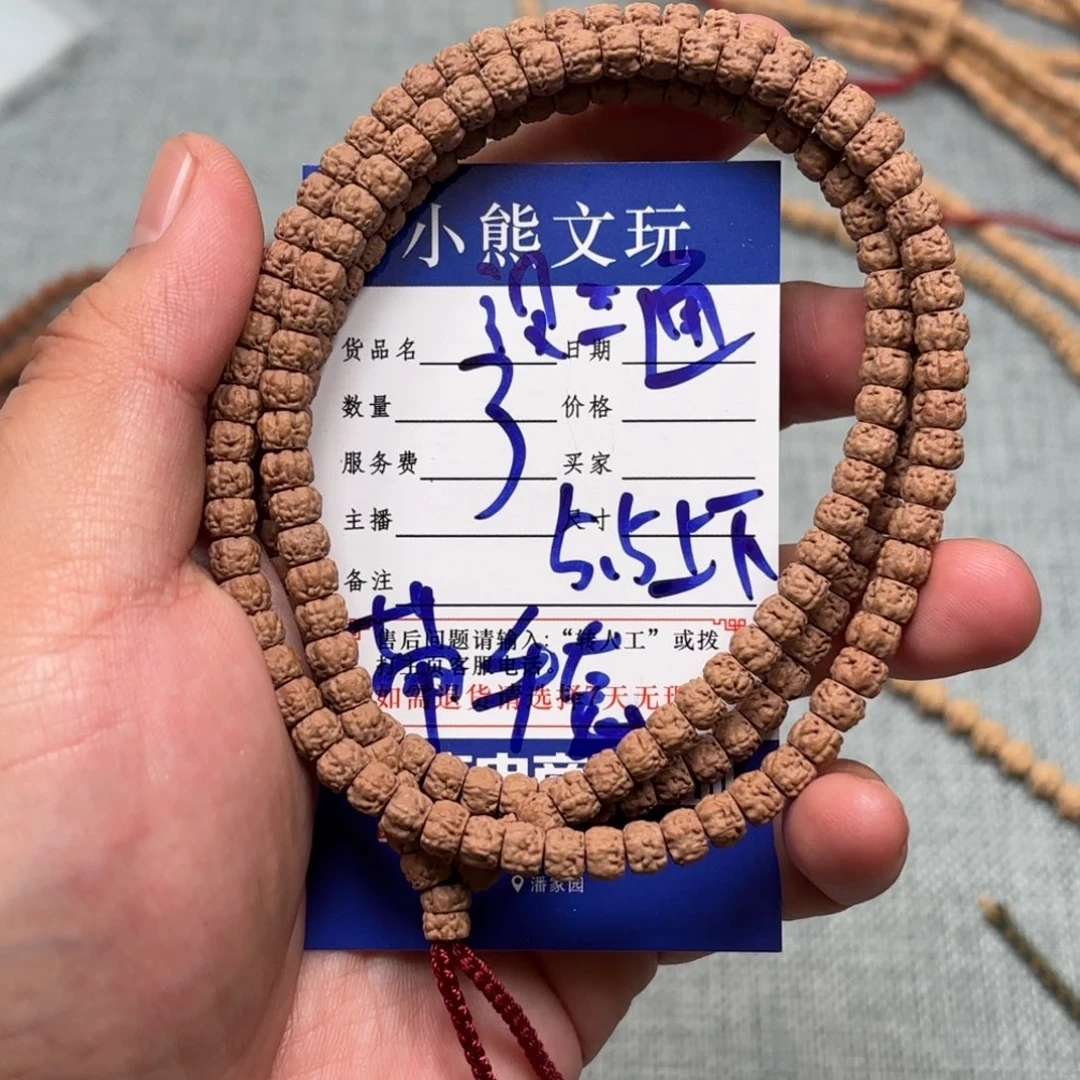 小熊文玩
没三通
了
货品名 日期
数量 价格
服务费 买家
主播 尺寸
5.5上下
备注
带牟
售后问题请输入:“转人工”或拨
打主页客服电话
如需退货请选择7天无理
潘家园